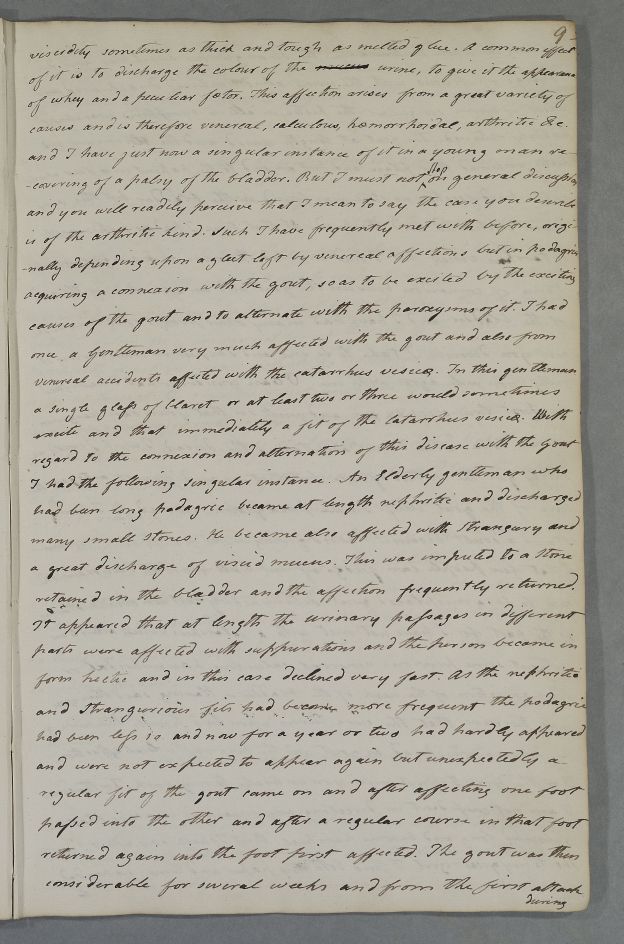 9
viscidity sometimes as thick and tough as melted glue. A common effect
of it is to discharge the colour of the mucus urine, to give it the appearance
of whey and a peculiar fœtor. This affection arises from a great variety of
causes and is therefore venereal, calculous, hæmorrhoidal, arthritic &c.
and I have just now a singular instance of it in a young man re-
-covering of a palsy of the bladder. But I must not stop on general discussion
and you will readily perceive that I mean to say the case you describe
is of the arthritic kind. Such I have frequently met with before, origi-
-nally depending upon a gleet left by venereal affections but in podagrics
acquiring a connexion with the gout, so as to be excited by the exciting
causes of the gout and to alternate with the paroxysms of it. I had
once a Gentleman very much affected with the gout and also from
venereal accidents affected with the catarrhus vesicæ. In this gentleman
a single glass of Claret or at least two or three would sometimes
excite and that immediately a fit of the Catarrhus vesicæ. With
regard to the connexion and alternation of this disease with the Gout
I had the following singular instance. An Elderly gentleman who
had been long podagric became at length nephritic and discharged
many small stones. He became also affected with Strangury and
a great discharge of viscid mucus. This was imputed to a stone
retained in the bladder and the affection frequently returned.
It appeared that at length the urinary passages in different
parts were affected with suppurations and the person became in
form hectic and in this case declined very fast. As the nephritic
and Strangurious fits had become more frequent the podagric
had been less so and now for a year or two had hardly appeared
and were not expected to appear again but unexpectedly a
regular fit of the gout came on and after affecting one foot
passed into the other and after a regular course in that foot
returned again into the foot first affected. The gout was thus
considerable for several weeks and from the first attack
during